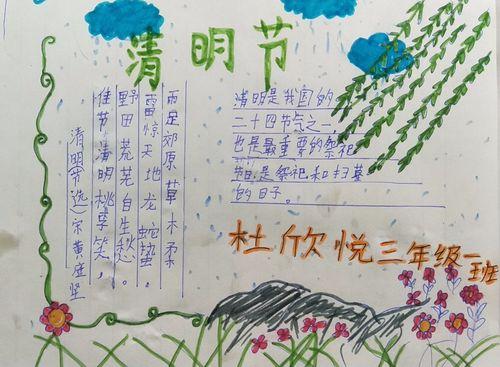 清明节
清明节(选)宋黄庭坚
佳节清明桃李笑，
野田荒芜自生愁。
雷惊天地龙蛇蛰，
雨足郊原草木柔
清明是我国的
二十四节气之一，
也是最重要的祭祀
节日，是祭祀和扫墓
的日子。
杜欣悦三年级一班